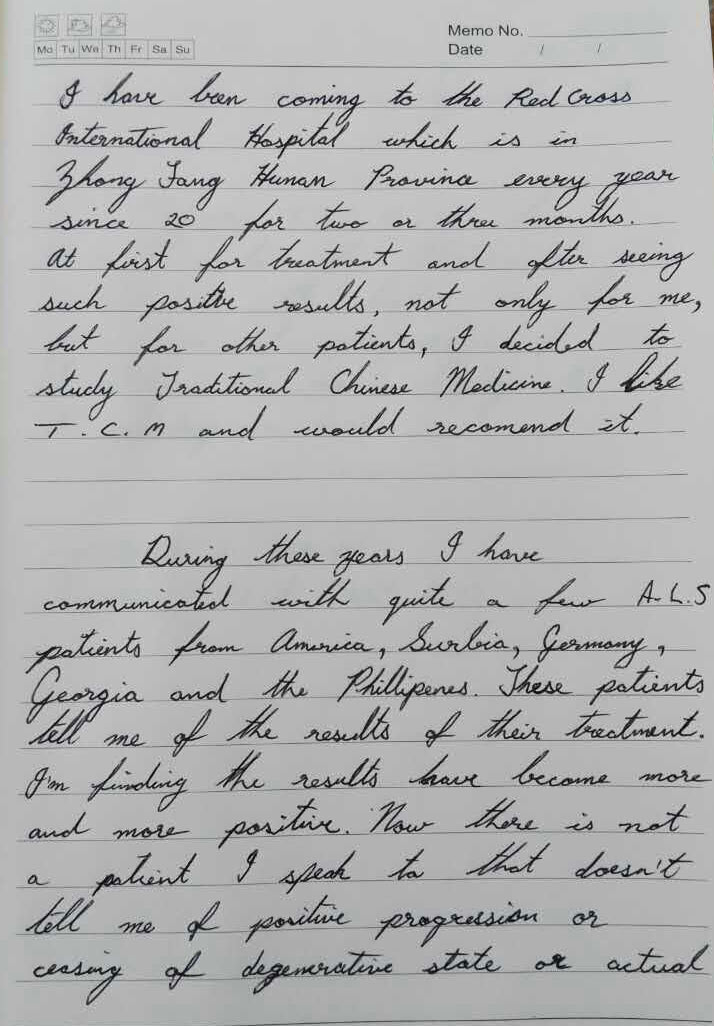 Memo No.
Mo Tu We Th Fr Sa Su
Date / /
I have been coming to the Red Cross
International Hospital which is in
Zhong Fang Hunan Province every year
since 20 for two or three months.
At first for treatment and after seeing
such positive results, not only for me,
but for other patients, I decided to
study Traditional Chinese Medicine. I like
T.C.M and would recomend it.
During these years I have
communicated with quite a few A.L.S
patients from America, Surbia, Germany,
Georgia and the Phillipenes. These patients
tell me of the results of their treatment.
I'm finding the results have become more
and more positive. Now there is not
a patient I speak to that doesn't
tell me of positive progression or
ceasing of degenerative state or actual